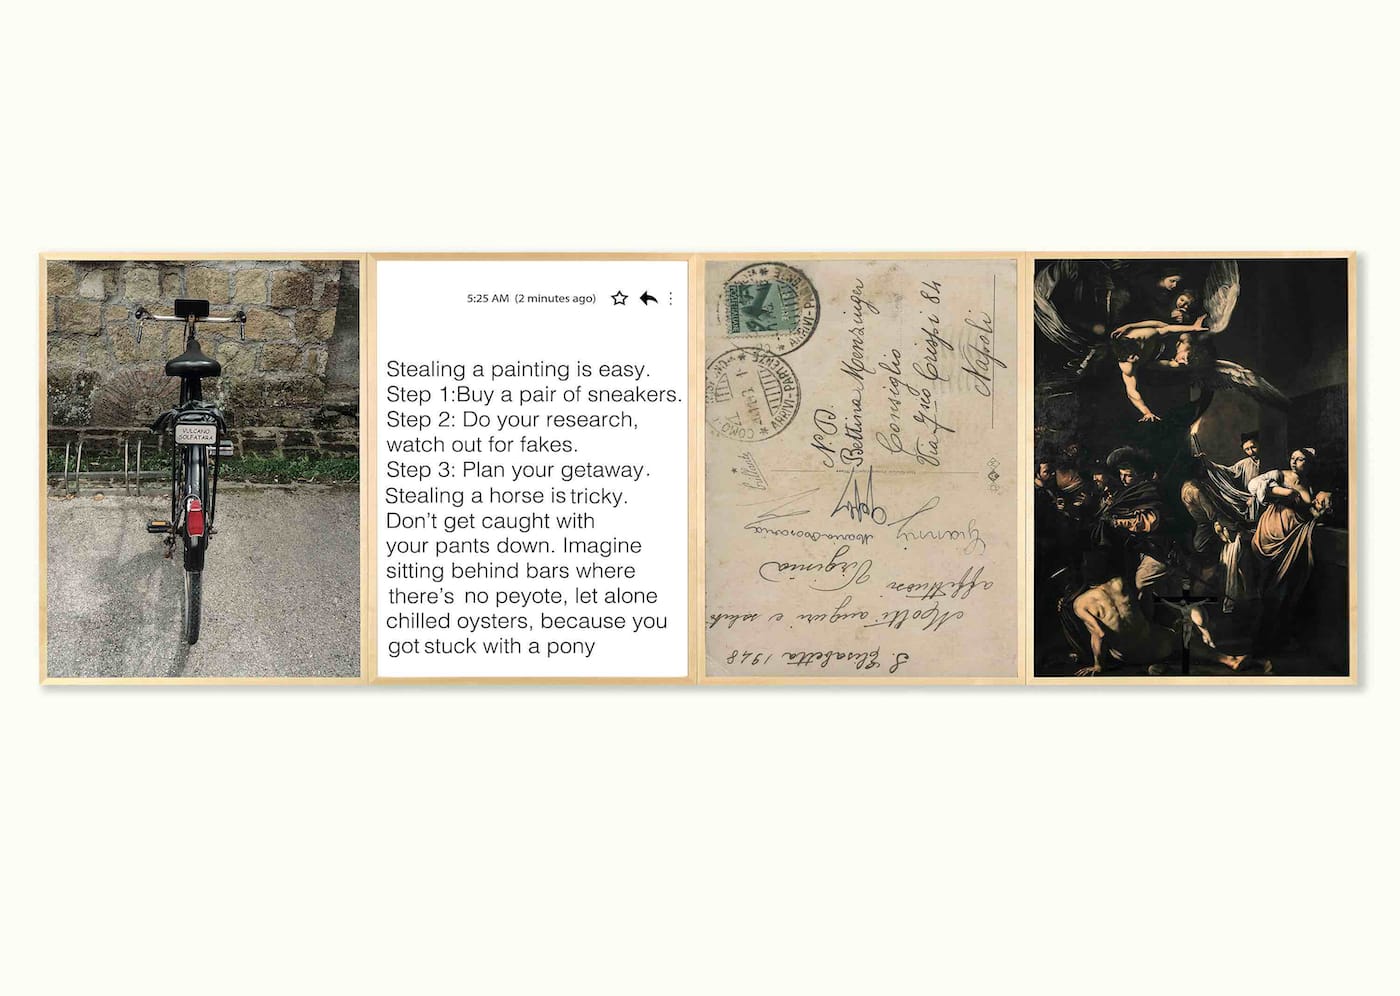 VULCANO
SOLFATARA
5:25 AM (2 minutes ago)
Stealing a painting is easy.
Step 1:Buy a pair of sneakers.
Step 2: Do your research,
watch out for fakes.
Step 3: Plan your getaway.
Stealing a horse is tricky.
Don’t get caught with
your pants down. Imagine
sitting behind bars where
there’s no peyote, let alone
chilled oysters, because you
got stuck with a pony
N.D.
Bettina Menzinger
Consiglio
Via Gio Crispi 84
Napoli
ARRIVI-PARTENZE
ARRIVI-PARTENZE
S. Elisabetta 1948
Molti auguri e saluti
affettuosi Virginia
Gianni